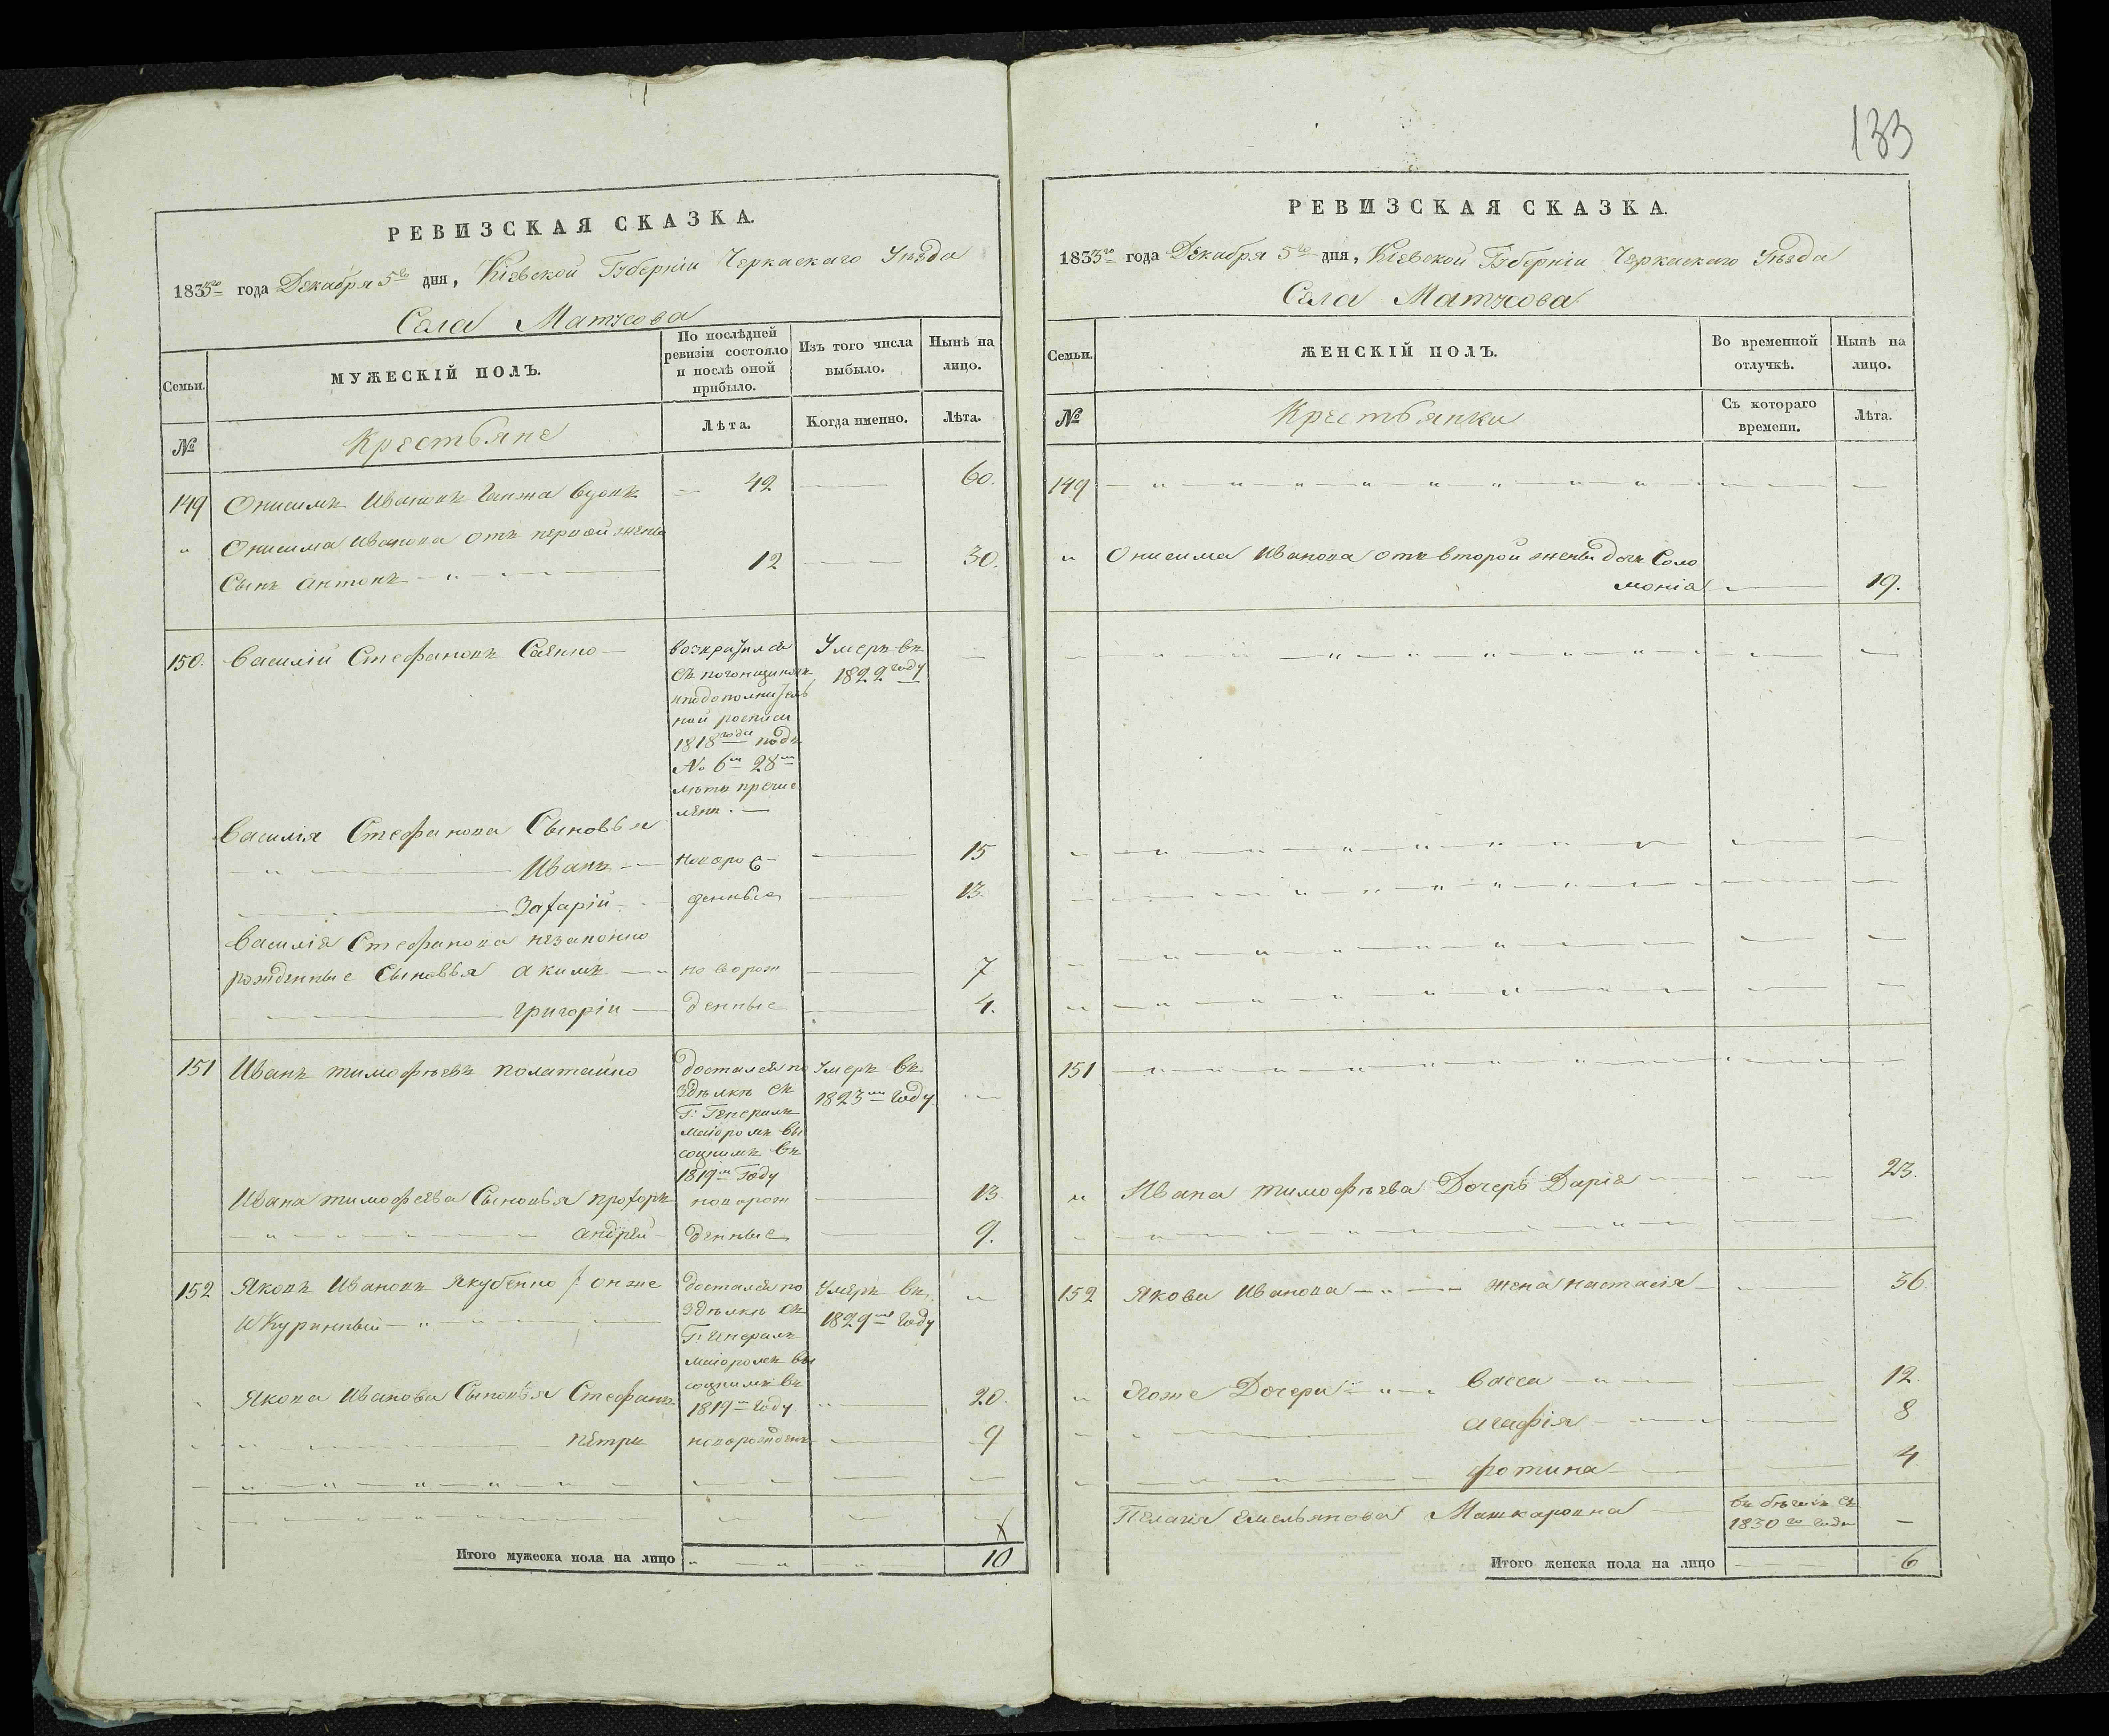 РЕВИЗСКАЯ СКАЗКА.
1835го года Декабря 5го дня, Кіевской Губерніи Черкаскаго Уѣзда
Села Матусова
Семьи.
МУЖЕСКІЙ ПОЛЪ.
По послѣдней ревизіи состояло и послѣ оной прибыло.
Изъ того числа выбыло.
Нынѣ на лицо.
№
Крестьяне
Лѣта.
Когда именно.
Лѣта.
149 Онисимъ Ивановъ Ганжа вдовъ 42 60.
" Онисима Иванова отъ первой жены
Сынъ Антонъ 12 30.
150. Василій Стефановъ Саенко
возвратился
съ
дополнитель
ной росписи
1818 года подъ
№ 6м 28м
лѣтъ причис
ленъ.
Умеръ въ
1822 году
Василія Стефанова Сыновья
Иванъ новорож 15
Захарій денные 13.
Василія Стефанова незаконно
рожденные Сыновья Акимъ новорож 7
Григорій денные 4.
151 Иванъ Тимофѣевъ Полатайко
достался по
здѣлкѣ съ
Г: Генералъ
маіоромъ Вы
соцкимъ въ
1819м Году
Умеръ въ
1823м Году
Ивана Тимофеева Сыновья Прохоръ новорож 13.
Андрей денные 9.
152 Яковъ Ивановъ Якубенко /: онже
и Куринный
достался по
здѣлкѣ съ
Г: Генералъ
маіоромъ Вы
соцкимъ въ
1819м Году
Умеръ въ
1829м Году
Якова Иванова Сыновья Стефанъ 20.
Петръ новорожденъ 9
Итого мужеска пола на лицо 10
133
РЕВИЗСКАЯ СКАЗКА.
1835го года Декабря 5го дня, Кіевской Губерніи Черкаскаго Уѣзда
Села Матусова
Семьи.
ЖЕНСКІЙ ПОЛЪ.
Во временной отлучкѣ.
Нынѣ на лицо.
№
Крестьянки
Съ котораго времени.
Лѣта.
149
" Онисима Иванова отъ второй жены дочь Соло
монія 19.
151
" Ивана Тимофѣева Дочерь Дарія 23.
152 Якова Иванова жена Настасія 36.
" Егоже Дочери Васса 12.
Агафія 8
Фотина 4
Пелагія Емельянова Машкаровна
въ бѣгахъ съ
1830го Года
Итого женска пола на лицо 6